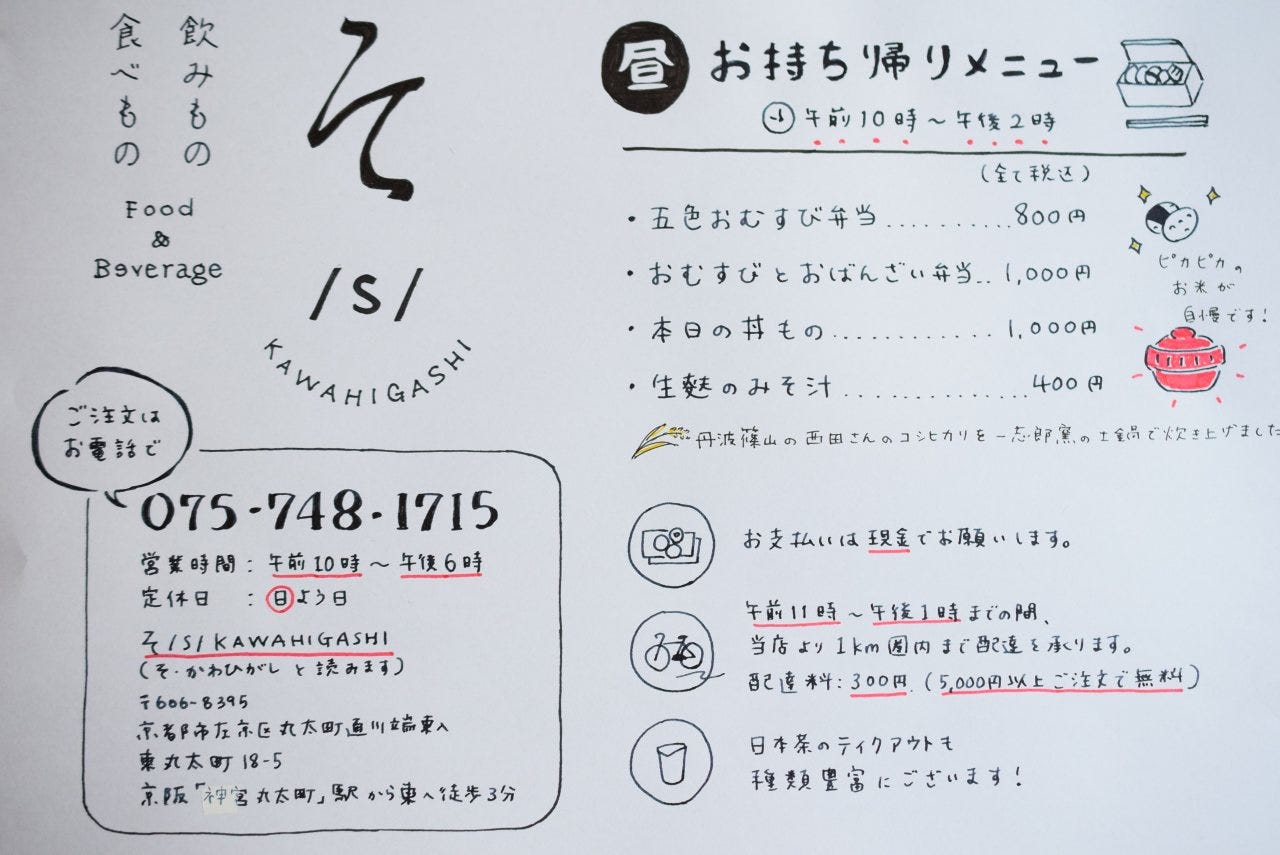 飲みもの
食べもの
Food
&
Beverage
そ
/S/
KAWAHIGASHI
ご注文は
お電話で
075-748-1715
営業時間：午前10時～午後6時
定休日：日よう日
そ/S/KAWAHIGASHI
(そ・かわひがし と読みます)
〒606-8395
京都市左京区丸太町通川端東入
東丸太町18-5
京阪「神宮丸太町」駅から東へ徒歩3分
昼 お持ち帰りメニュー
午前10時～午後2時
(全て税込)
・五色おむすび弁当..........800円
・おむすびとおばんざい弁当..1,000円
・本日の丼もの............1,000円
・生麩のみそ汁..............400円
ピカピカの
お米が
自慢です!
丹波篠山の西田さんのコシヒカリを一志郎窯の土鍋で炊き上げました
お支払いは現金でお願いします。
午前11時～午後1時までの間、
当店より1km圏内まで配達を承ります。
配達料：300円.(5,000円以上ご注文で無料)
日本茶のティクアウトも
種類豊富にございます!